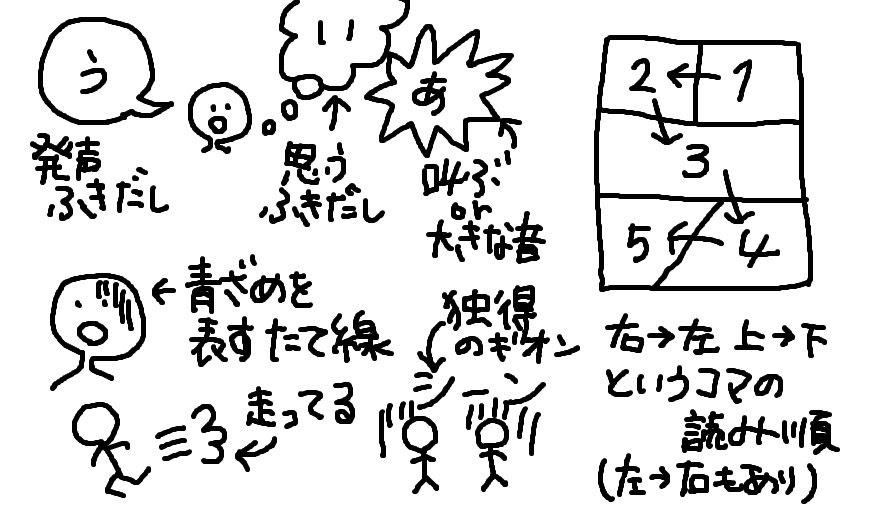 う
発声
ふきだし
い
思う
ふきだし
あ
叫ぶ
or
大きな音
青ざめを
表すたて線
走ってる
独得
のギオン
シーン
2 ← 1
3
5 ← 4
右→左 上→下
というコマの
読み順
(左→右もあり)